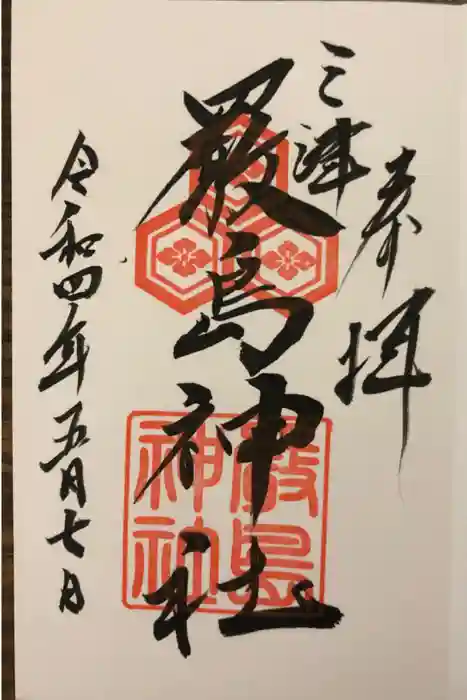 奉拝
三津
厳島神社
令和四年五月七日
厳島
神社